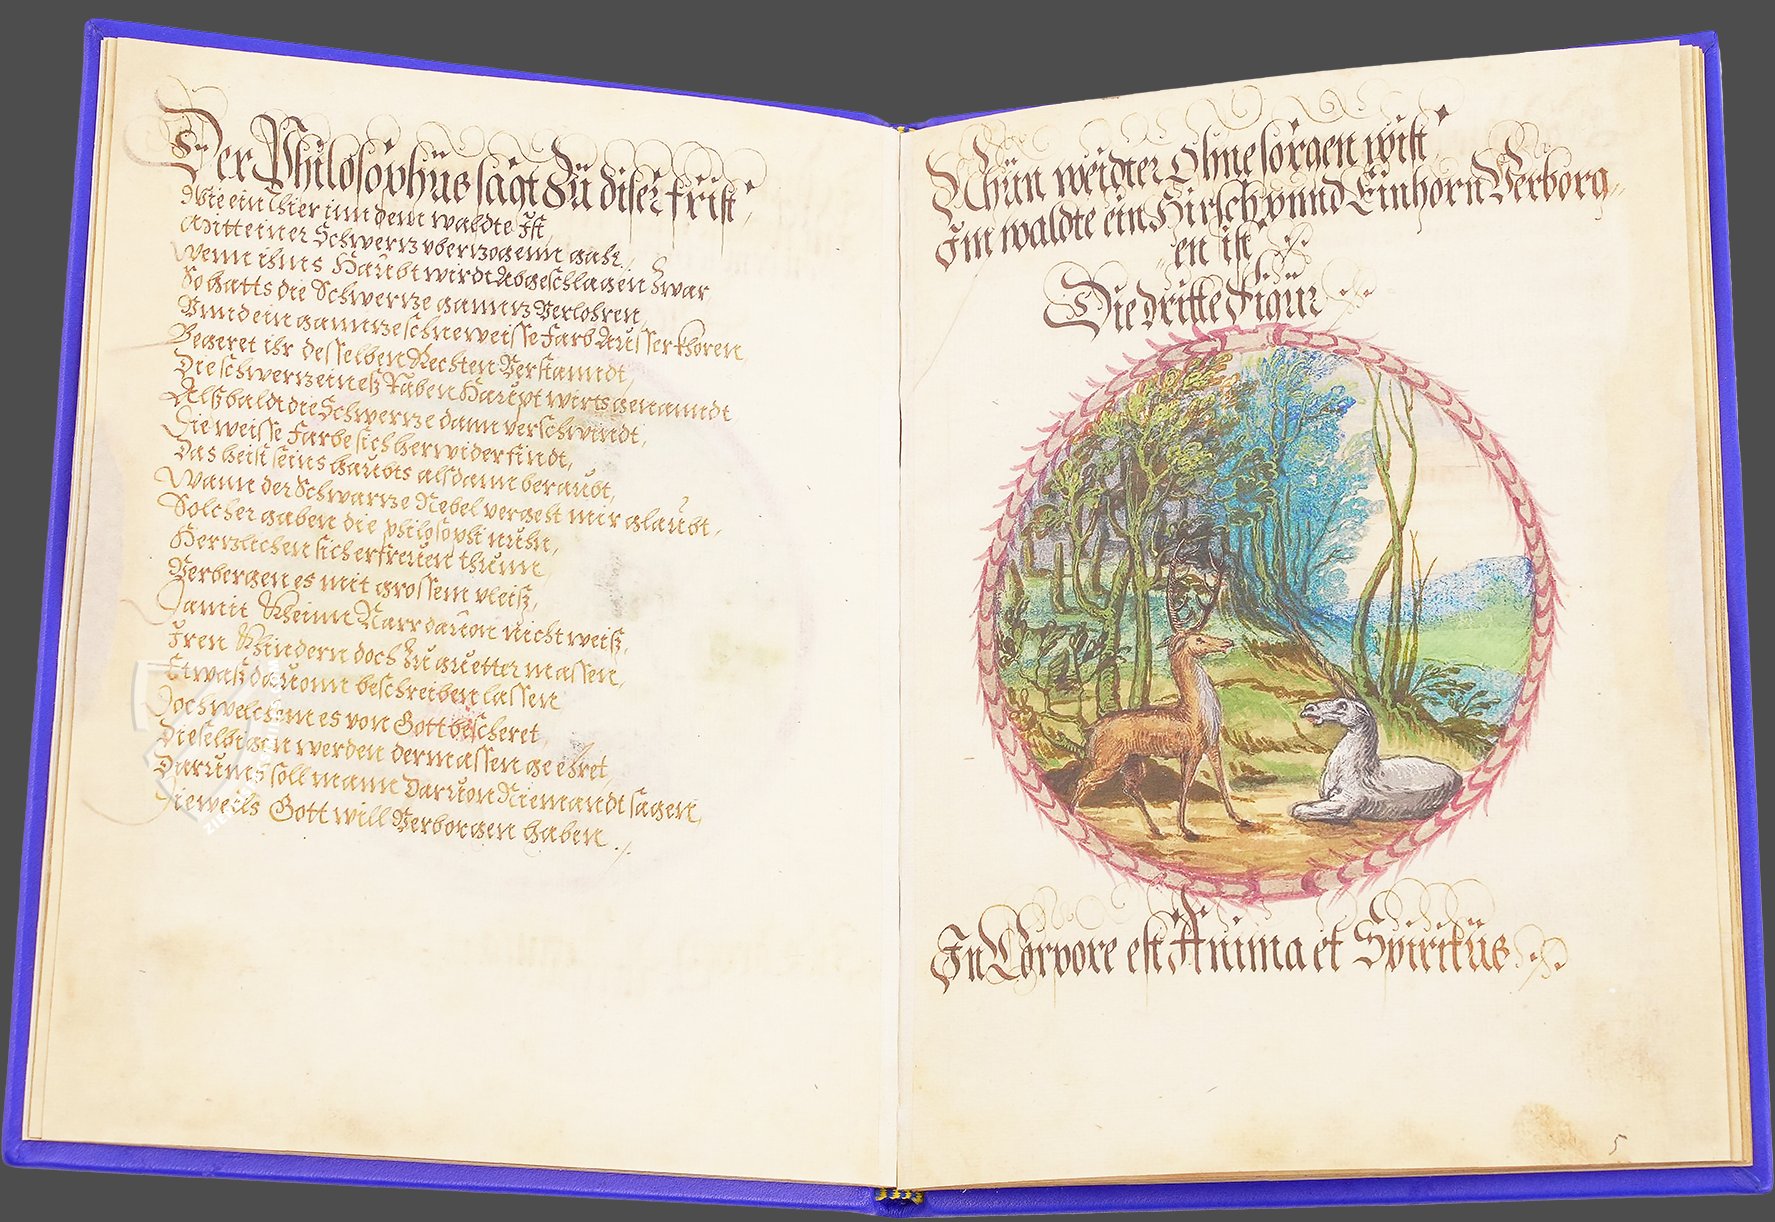 Der Philosophüs sagt zu diser frist,
Wie ein Thier inn dem waldte Ist,
Mitt einer Schwertz vberzogenn gahr,
Wenn ihms Haubt wirdt Abgeschlagen zwar
So hatts die Schwertze ganntz Verlohren,
Vnnd ein ganntze schneeweisse Farb Ausserkhoren,
Begeret ihr desselben Rechten Verstanndt,
Die schwertz eineß Raben Haupt wirts genanndt,
Alßbaldt die Schwertze dann verschwindt,
Die weisse Farbe sich herwider findt,
Das heist seins haubts alsdann beraubt,
Wann der Schwartze Nebel vergeht mir glaubt,
Solcher gaben die philosophi nuhn,
Hertzlichen sich erfreuen thunn,
Verbergen es mit grossem vleiß,
Damit Kheinn Narr dauon nicht weiß,
Iren Khindern doch zu guetter massen,
Etwaß dauonn beschreiben lassen
Doch welchem es von Gott bescheret,
Dieselbigen werden dermassen geehret
Darumb soll mann Daruon Niemandt sagen,
Dieweils Gott will Verborgen haben ./.
Nhün weidter Ohne sorgen wist
Im waldte ein Hirsch vnnd Einhorn Verborg,,
,,en ist
Die dritte Figür
In Corpore est Anima et Spiritüs
5